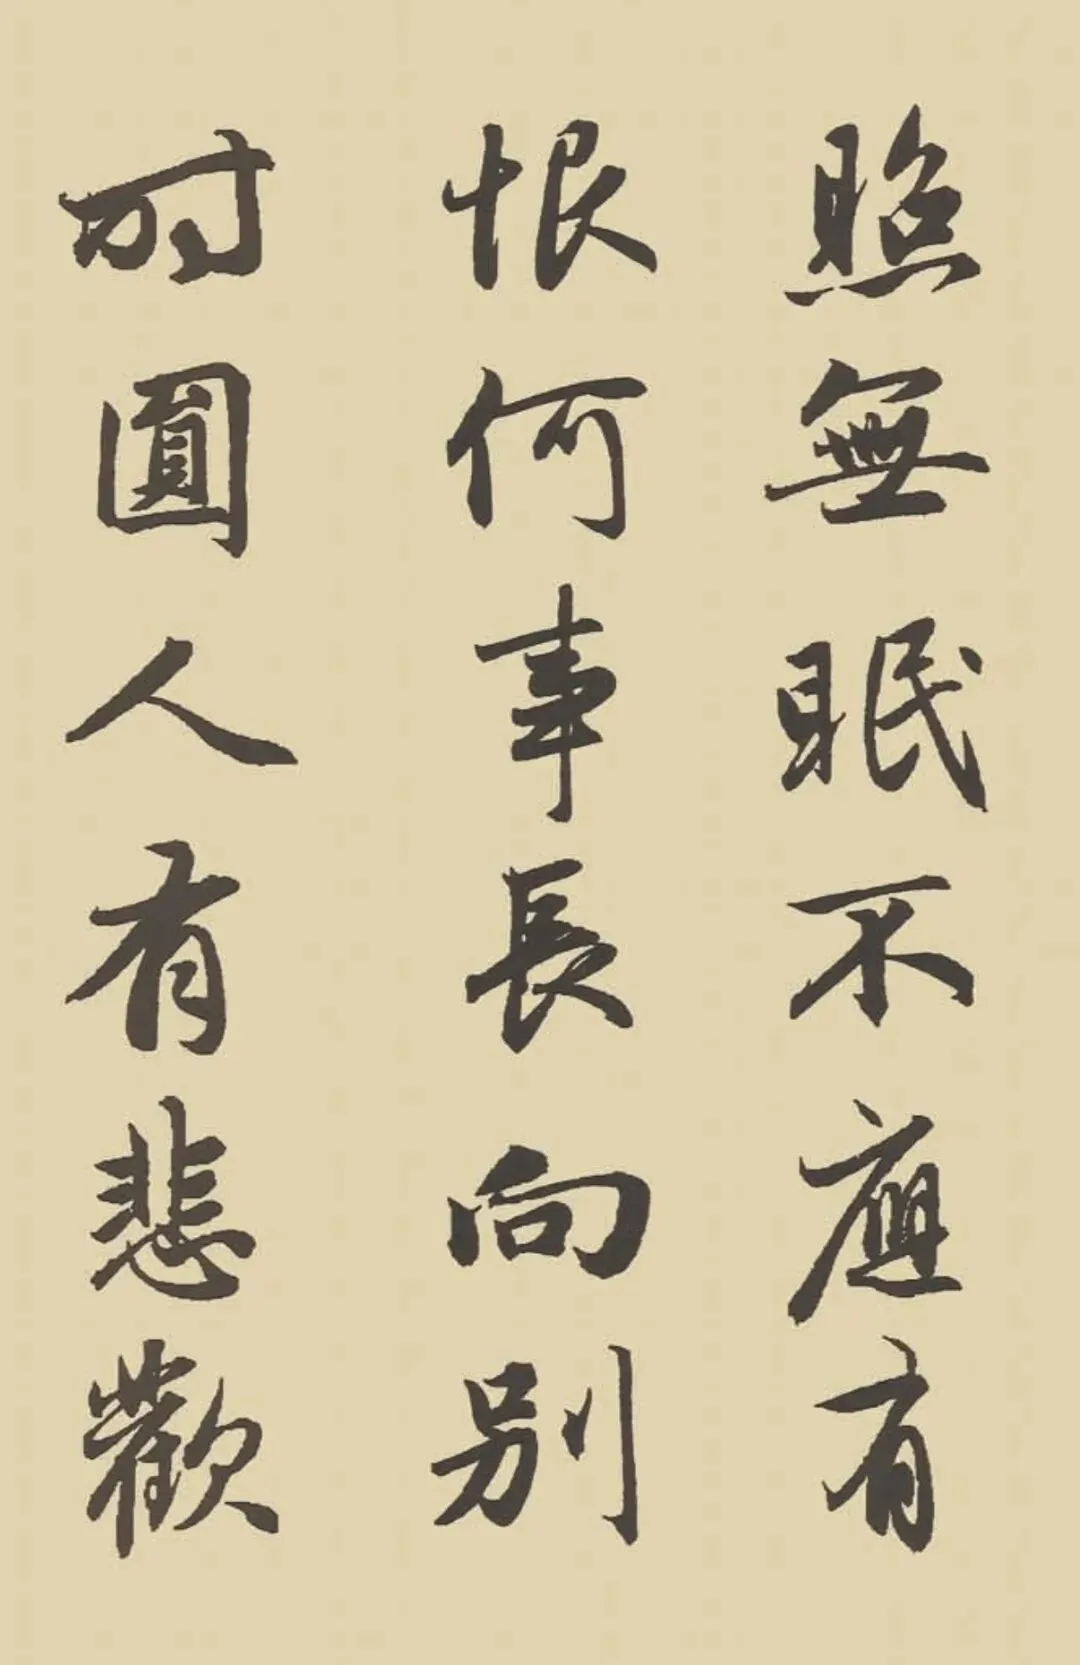 照無眠不應有
恨何事長向別
時圓人有悲歡